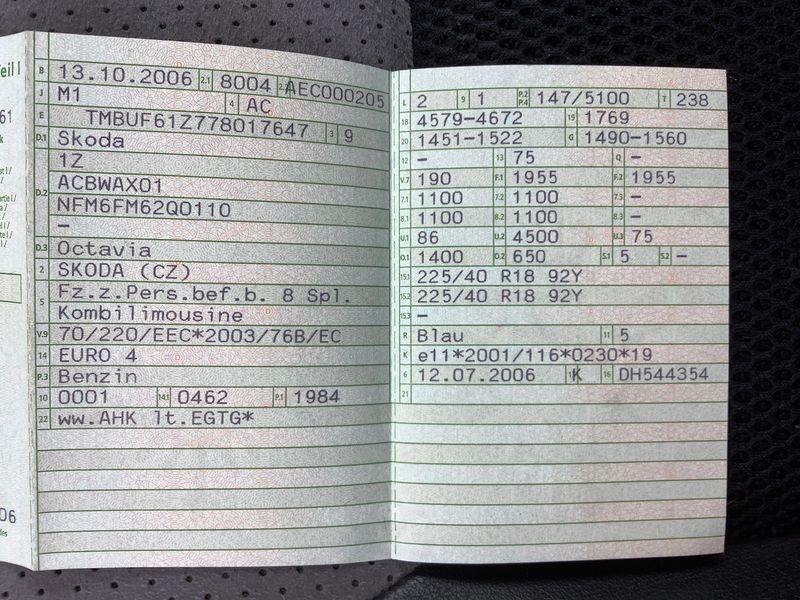 Teil I
B 13.10.2006 2.1 8004 2.2 AEC000205
J M1 4 AC
E TMBUF61Z778017647 3 9
D.1 Skoda
D.2 1Z
ACBWAX01
NFM6FM62Q0110
–
D.3 Octavia
2 SKODA (CZ)
5 Fz.z.Pers.bef.b. 8 Spl.
Kombilimousine
V.9 70/220/EEC*2003/76B/EC
14 EURO 4
P.3 Benzin
10 0001 14.1 0462 P.1 1984
22 ww.AHK lt.EGTG*
L 2 9 1 P.2 P.4 147/5100 T 238
18 4579-4672 19 1769
20 1451-1522 G 1490-1560
12 – 13 75 Q –
V.7 190 F.1 1955 F.2 1955
7.1 1100 7.2 1100 7.3 –
8.1 1100 8.2 1100 8.3 –
U.1 86 U.2 4500 U.3 75
O.1 1400 O.2 650 S.1 5 S.2 –
15.1 225/40 R18 92Y
15.2 225/40 R18 92Y
15.3 –
R Blau 11 5
K e11*2001/116*0230*19
6 12.07.2006 17 K 16 DH544354
21